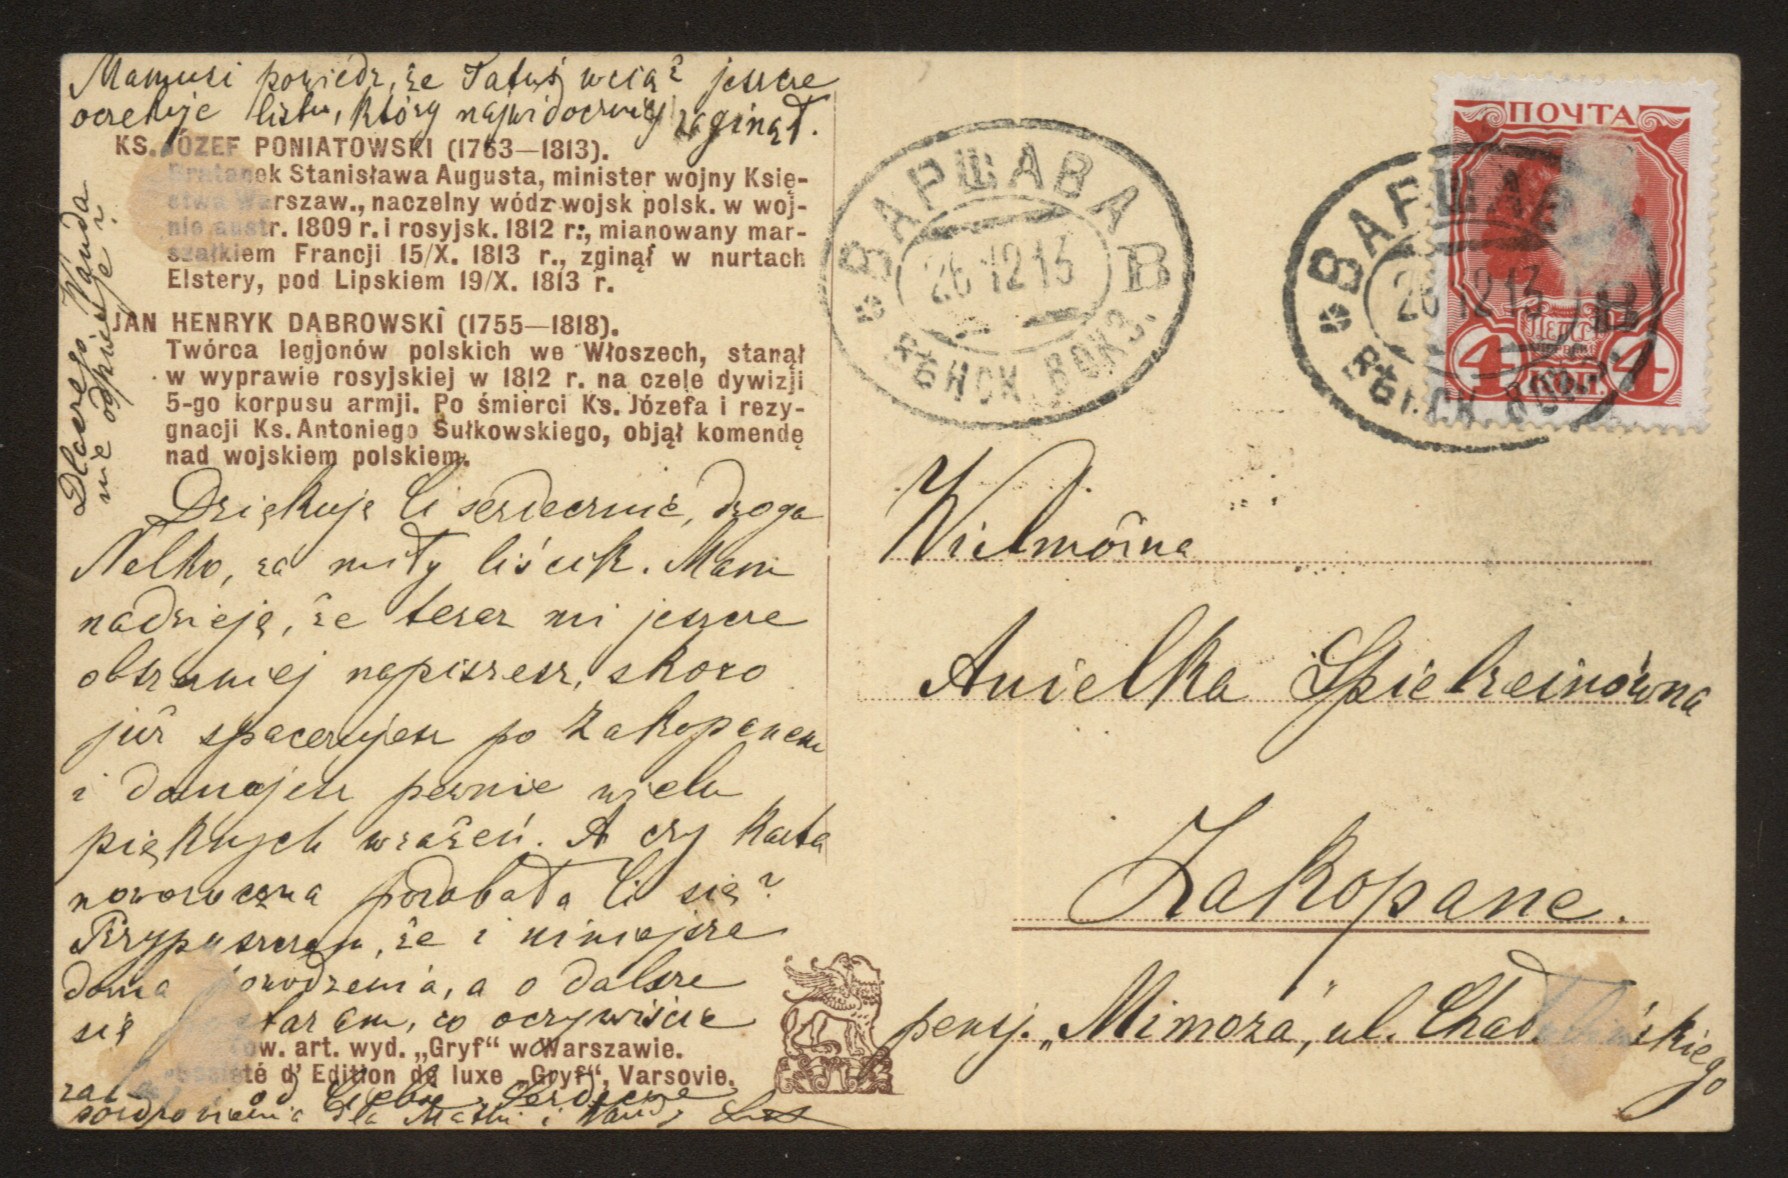 Mamusi powiedz, że Tatuś wciąż jeszcze
oczekuje listu, który najwidoczniej zaginął.
KS. JÓZEF PONIATOWSKI (1763—1813).
Bratanek Stanisława Augusta, minister wojny Księ-
stwa Warszaw., naczelny wódz wojsk polsk. w woj-
nie austr. 1809 r. i rosyjsk. 1812 r., mianowany mar-
szałkiem Francji 15/X. 1813 r., zginął w nurtach
Elstery, pod Lipskiem 19/X. 1813 r.
JAN HENRYK DĄBROWSKI (1755—1818).
Twórca legjonów polskich we Włoszech, stanął
w wyprawie rosyjskiej w 1812 r. na czele dywizji
5-go korpusu armji. Po śmierci Ks. Józefa i rezy-
gnacji Ks. Antoniego Sułkowskiego, objął komendę
nad wojskiem polskiem.
Dlaczego Wanda
nie odpisuje?
Dziękuję Ci serdecznie, droga
Nelko, za miły liścik. Mam
nadzieję, że teraz mi jeszcze
obszerniej napiszesz, skoro
już spacerujesz po Zakopanem
i doznajesz pewnie wielu
pięknych wrażeń. A czy karta
noworoczna podobała Ci się?
Przypuszczam, że i niniejsza
dozna powodzenia, a o dalsze
się postaram, co oczywiście
Tow. art. wyd. „Gryf“ w Warszawie.
Société d' Edition de luxe „Gryf“, Varsovie.
od Ciebie. Serdeczne
pozdrowienia dla Matki i Wandy
ВАРШАВА
26 12 13
В
ВѢНСК. ВОКЗ.
ВАРШАВА
26 12 13
В
ВѢНСК. ВОКЗ.
ПОЧТА
4 КОП. 4
Wielmożna
Anielka Spielreinówna
Zakopane.
pensj. „Mimoza“, ul. Chałubińskiego